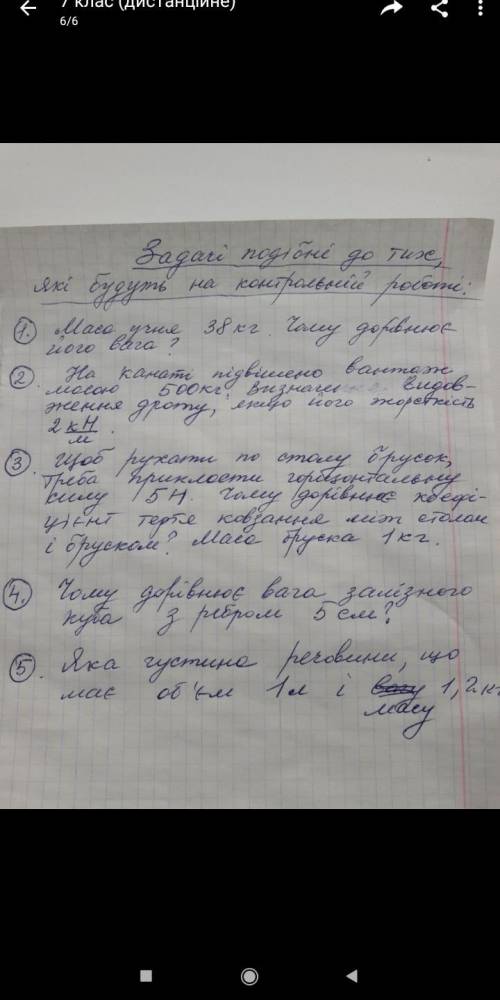 7 клас (дистанційне)
6/6
Задачі подібні до тих,
які будуть на контрольній роботі:
1. Маса учня 38 кг. Чому дорівнює
його вага?
2. На канаті підвішено вантаж
масою 500кг. видов-
ження дроту, якщо його жорсткість
2 кН/м.
3. Щоб рухати по столу брусок,
треба прикласти горизонтальну
силу 5 Н. Чому дорівнює коефі-
цієнт тертя ковзання між столом
і бруском? Маса бруска 1 кг.
4. Чому дорівнює вага залізного
куба з ребром 5 см?
5. Яка густина речовини, що
має об'єм 1л і вагу 1,2 кг
масу